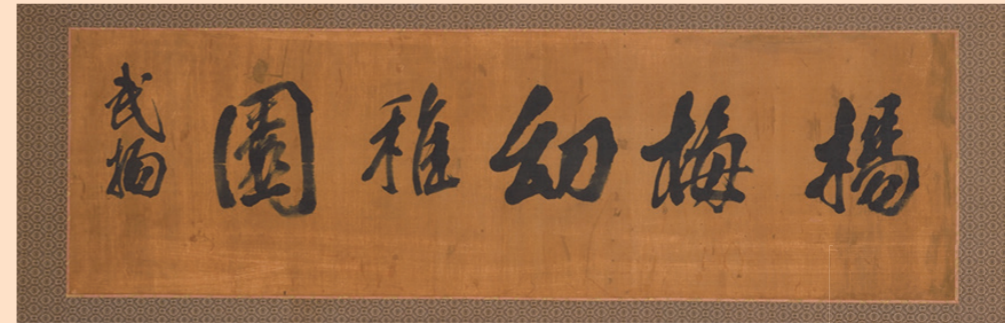 楊梅幼稚園
武揚